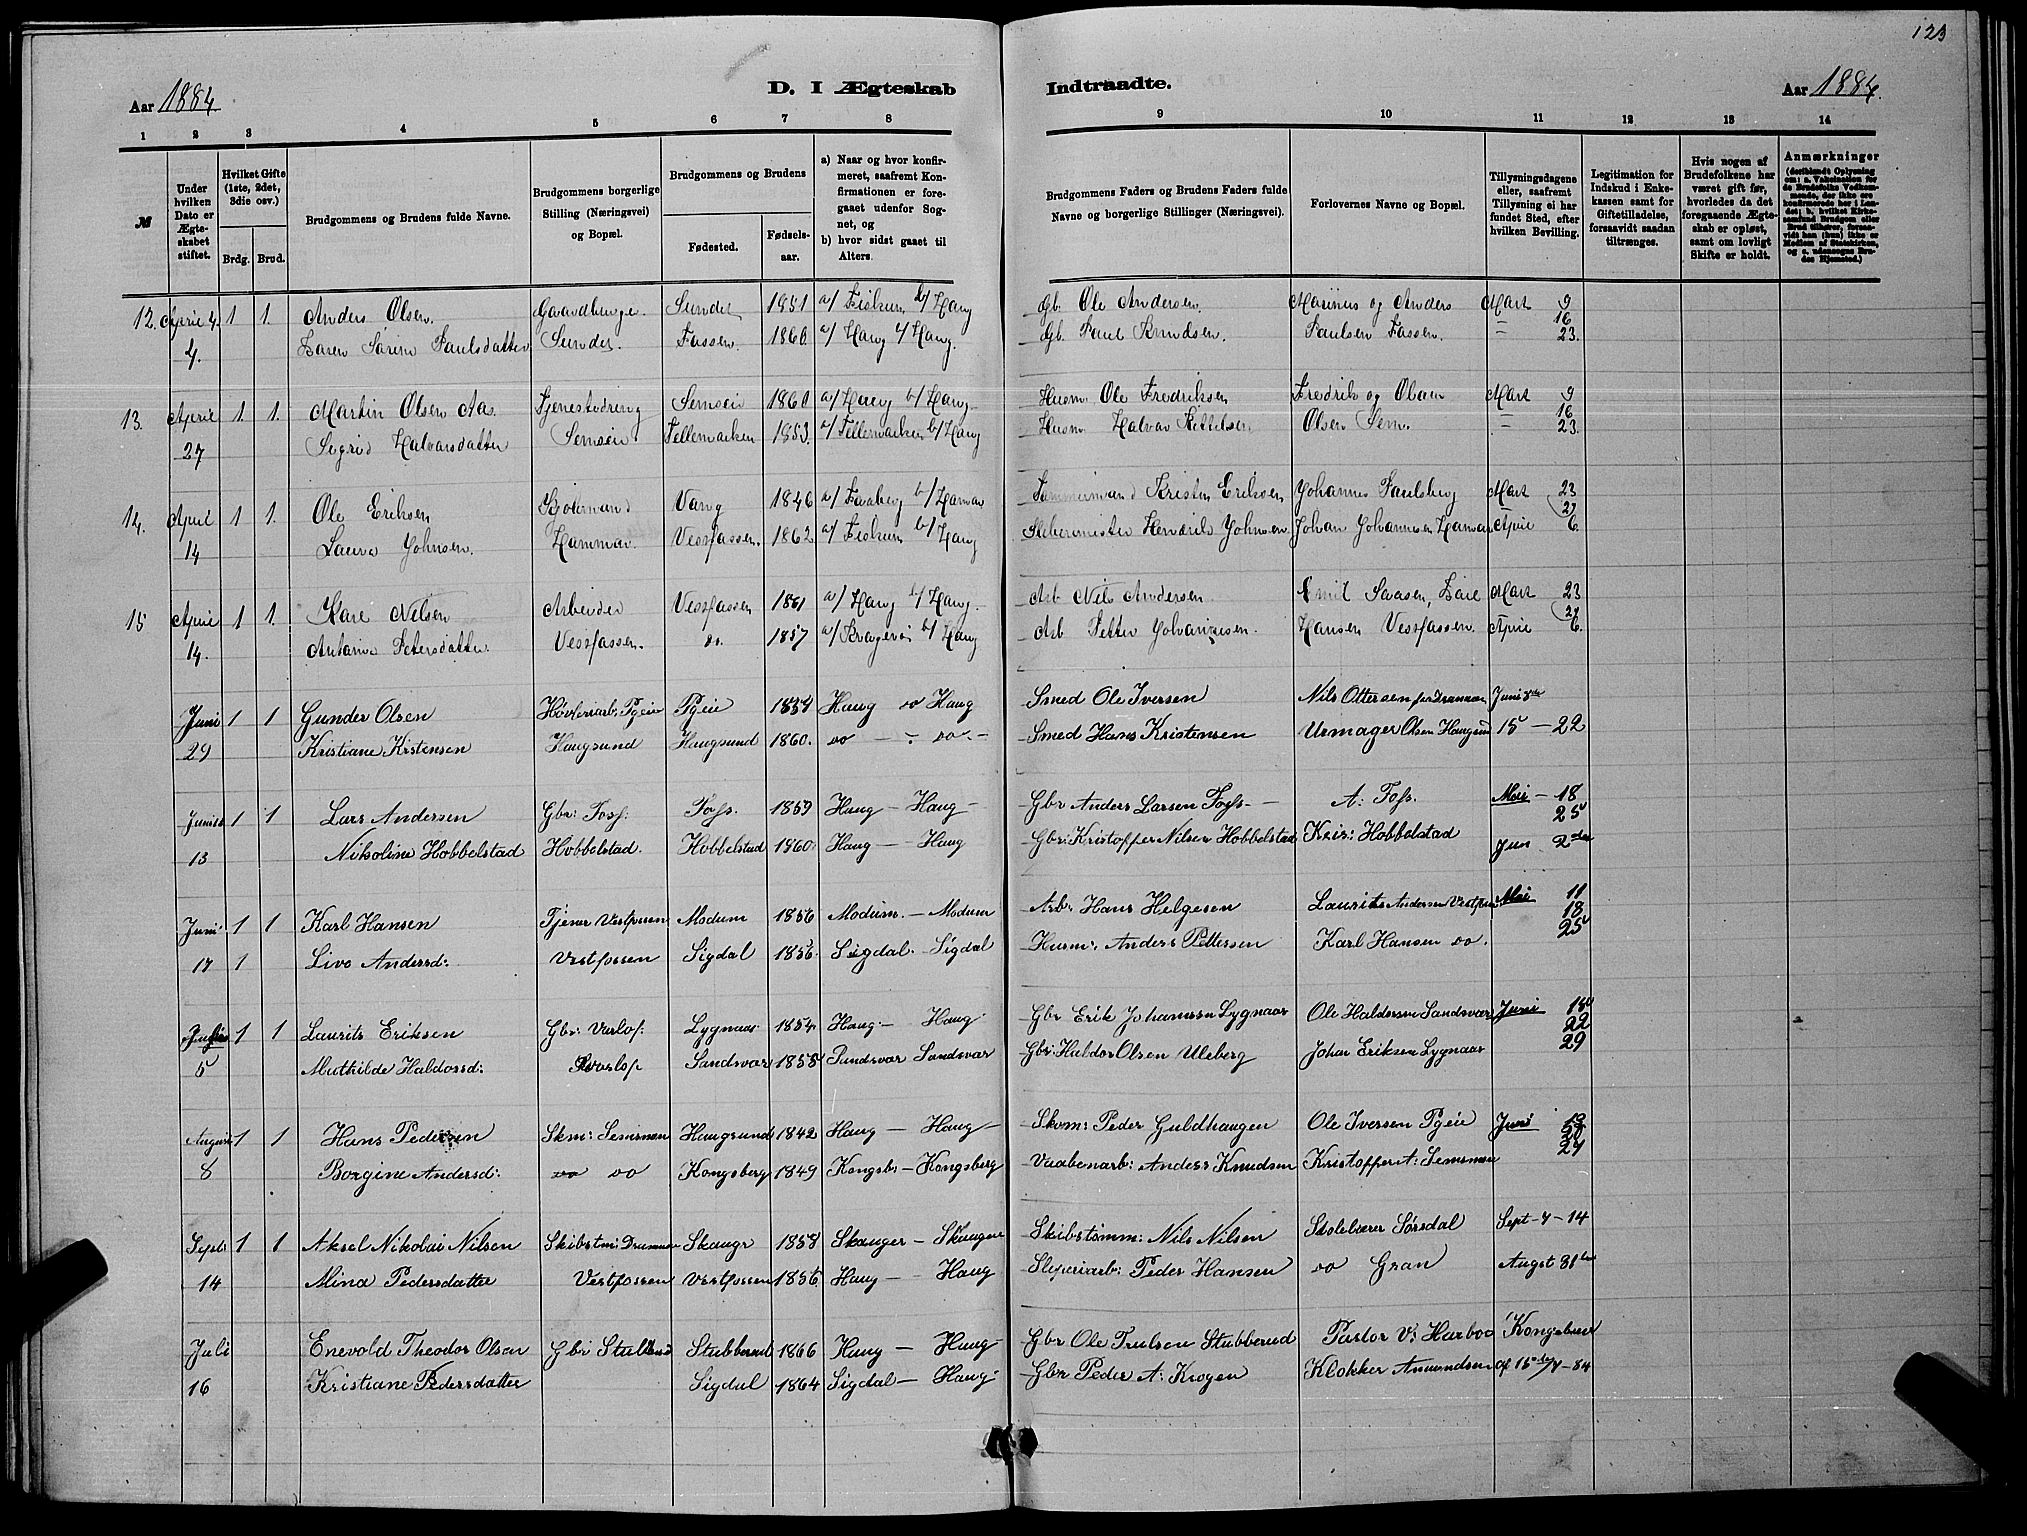 123
Aar 1884
D. I Ægteskab
Indtraadte.
Aar 1884.
1 2 3 4 5 6 7 8
9 10 11 12 13 14
№
Under hvilken Dato er Ægteskabet stiftet.
Hvilket Gifte (1ste, 2det, 3die osv.)
Brdg. Brud.
Brudgommens og Brudens fulde Navne.
Brudgommens borgerlige Stilling (Næringsvei) og Bopæl.
Brudgommens og Brudens
Fødested.
Fødselsaar.
a) Naar og hvor konfirmeret, saafremt Konfirmationen er foregaaet udenfor Sognet, og
b) hvor sidst gaaet til Alters.
Brudgommens Faders og Brudens Faders fulde Navne og borgerlige Stillinger (Næringsvei).
Forlovernes Navne og Bopæl.
Tillysningsdagene eller, saafremt Tillysning ei har fundet Sted, efter hvilken Bevilling.
Legitimation for Indskud i Enkekassen samt for Giftetilladelse, forsaavidt saadan tiltrænges.
Hvis nogen af Brudefolkene har været gift før, hvorledes da det foregaaende Ægteskab er opløst, samt om lovligt Skifte er holdt.
Anmærkninger
12. April 4. 1 1. Anders Olsen. Gaardbruger Sundet 1851 a/ Fiskum b/ Haug Gb. Ole Andersen. Marinus og Anders Mart 9
16
4. Karen Sørine Paulsdatter Sundet. Fossen. 1860 a/ Haug b/ Haug. Gb. Paul Knudsen. Paulsen Fossen. 23.
13. April 1. 1. Martin Olsen Aas. Tjenestedreng Semseie 1860 a/ Haug b/ Haug Husm. Ole Fredriksen Fredrik og Mart 9
16
27 Sigrid Halvorsdatter Semseie Tellemarken 1853. a/ Tellemarken b/ Haug Husm. Halvor Kittelsen Olsen Sem. 23.
14. April 1 1. Ole Eriksen Vang 1846 a/ b/ Tømmermand Kristen Eriksen Johannes Paulsberg Mart 23
14 Laura Johnsen. Vestfossen. 1862 a/ Fiskum b/ Haug Slibermester Hendrik Johnsen Johan Johannesen April 6.
15 April 1 1. Karl Nilsen Arbeider Vestfossen 1861 a/ Haug b/ Haug Arb Nils Andersen Emil Mart 23
14. Antonie Petersdatter Vestfossen. do. 1857 a/ Kragerø b/ Haug Arb Petter Johannesen. Hansen Vestfossen. April 6.
Juni 1 1 Gunder Olsen Høvleriarb. Pgeie Pgeie 1854 Haug do Haug Smed Ole Iversen Nils Ottersen Juni 8de
29 Kristiane Kristensen Haugsund Haugsund 1860. do — do — Smed Hans Kristensen Urmager Olsen Haugsund 15 — 22
Juni 1 1 Lars Andersen Gbr: Foss: Foss. 1859 Haug — Haug — Gbr Anders Larsen Foss — A: Foss. Mai — 18
25
13 Nikoline Hobbelstad Hobbelstad. Hobbelstad 1860. Haug — Haug Gbr: Kristoffer Nilsen Hobbelstad Kris: Hobbelstad Jun 2den
Juni 1 1 Karl Hansen Tjener Vestfossen Modum 1856 Modum. — Modum Arb: Hans Helgesen Laurits Andersen Vestfos Mai 11
18
25
17 1 Live Andersd: Vestfossen Sigdal 1856. Sigdal. Sigdal Husm: Anders Pettersen Karl Hansen do.
1 1 Laurits Eriksen Gbr: Varlo: Lygnaas 1854 Haug — Haug Gbr Erik Johannsen Lygnaas Ole Haldorsen Sandsvær Juni 15
22
5 Mathilde Haldorsd: Sandsvær 1858 Sandsvær Sandsvær Gbr: Haldor Olsen Uleberg Johan Eriksen Lygnaas 29
August 1 1 Hans Pedersen Skm: Semsmoen Haugsund 1842 Haug — Haug — Skom: Peder Guldhaugen Ole Iversen Pgeie Juni
8 Borgine Andersd: do do Kongsberg 1849 Kongsb: — Kongsberg Vaabenarb: Anders Knudsen Kristoffer A: Semsmoen 27
Septb 1 1 Aksel Nikolai Nilsen Skibstm: Drammen Skauger 1858 Skauger — Skauger Skibstømm: Nils Nilsen Skolelærer Sørsdal Sept — 7 — 14
14 Mina Pedersdatter Vestfossen Vestfossen 1856 Haug — Haug Sliperiarb: Peder Hansen do Gran Augst 31te
Juli Enevold Theodor Olsen Gbr Stubberud Stubberud 1866 Haug — Haug — Gbr Ole Trulsen Stubberud Pastor V. Harboe Kongebrev
16 Kristiane Pedersdatter Sigdal 1864 Sigdal — Haug Gbr Peder A: Krogen Klokker Amundsen af 15de/7 — 84